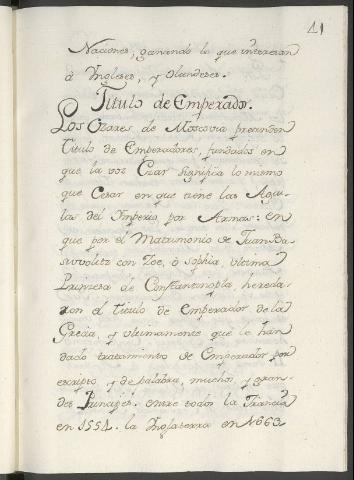 41
Naciones, ganando lo que interesan
à Ingleses, y Olandeses.
Titulo de Emperador.
Los Czares de Moscovia pretenden
Titulo de Emperadores, fundados en
que la voz Czar significa lo mismo
que Cesar en que tiene las Agui-
las del Imperio por Armas: en
que por el Matrimonio de Juan Ba-
silovvitz con Zoe, ò Sophia, ultima
Princesa de Constantinopla, hereda-
ron el Titulo de Emperador de la
Grecia, y ultimamente que le han
dado tratamiento de Emperador por
escripto, y de palabra, muchos, y gran-
des Principes. entre todos la Francia
en 1554. la Inglaterra en 1663